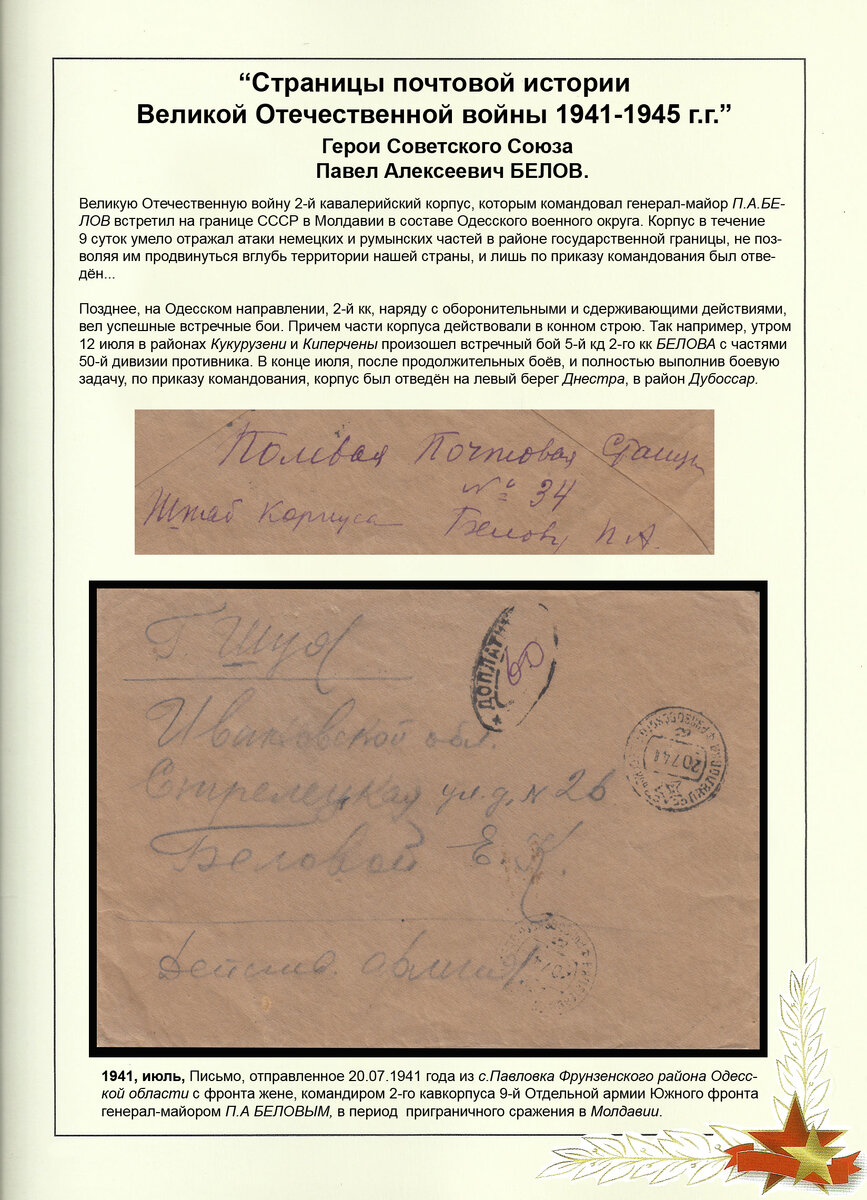 “Страницы почтовой истории
Великой Отечественной войны 1941-1945 г.г.”
Герои Советского Союза
Павел Алексеевич БЕЛОВ.
Великую Отечественную войну 2-й кавалерийский корпус, которым командовал генерал-майор П.А.БЕ-
ЛОВ встретил на границе СССР в Молдавии в составе Одесского военного округа. Корпус в течение
9 суток умело отражал атаки немецких и румынских частей в районе государственной границы, не поз-
воляя им продвинуться вглубь территории нашей страны, и лишь по приказу командования был отве-
дён...
Позднее, на Одесском направлении, 2-й кк, наряду с оборонительными и сдерживающими действиями,
вел успешные встречные бои. Причем части корпуса действовали в конном строю. Так например, утром
12 июля в районах Кукурузени и Киперчены произошел встречный бой 5-й кд 2-го кк БЕЛОВА с частями
50-й дивизии противника. В конце июля, после продолжительных боёв, и полностью выполнив боевую
задачу, по приказу командования, корпус был отведён на левый берег Днестра, в район Дубоссар.
Полевая Почтовая Станция
№ 34
Штаб Корпуса Белову П. А.
Г. Шуя
ДОПЛАТИТЬ
60
Ивановской обл.
20741
Стрелецкая ул. д. № 26
Беловой Е. К.
Действ. армия
1941, июль, Письмо, отправленное 20.07.1941 года из с.Павловка Фрунзенского района Одесс-
кой области с фронта жене, командиром 2-го кавкорпуса 9-й Отдельной армии Южного фронта
генерал-майором П.А БЕЛОВЫМ, в период приграничного сражения в Молдавии.